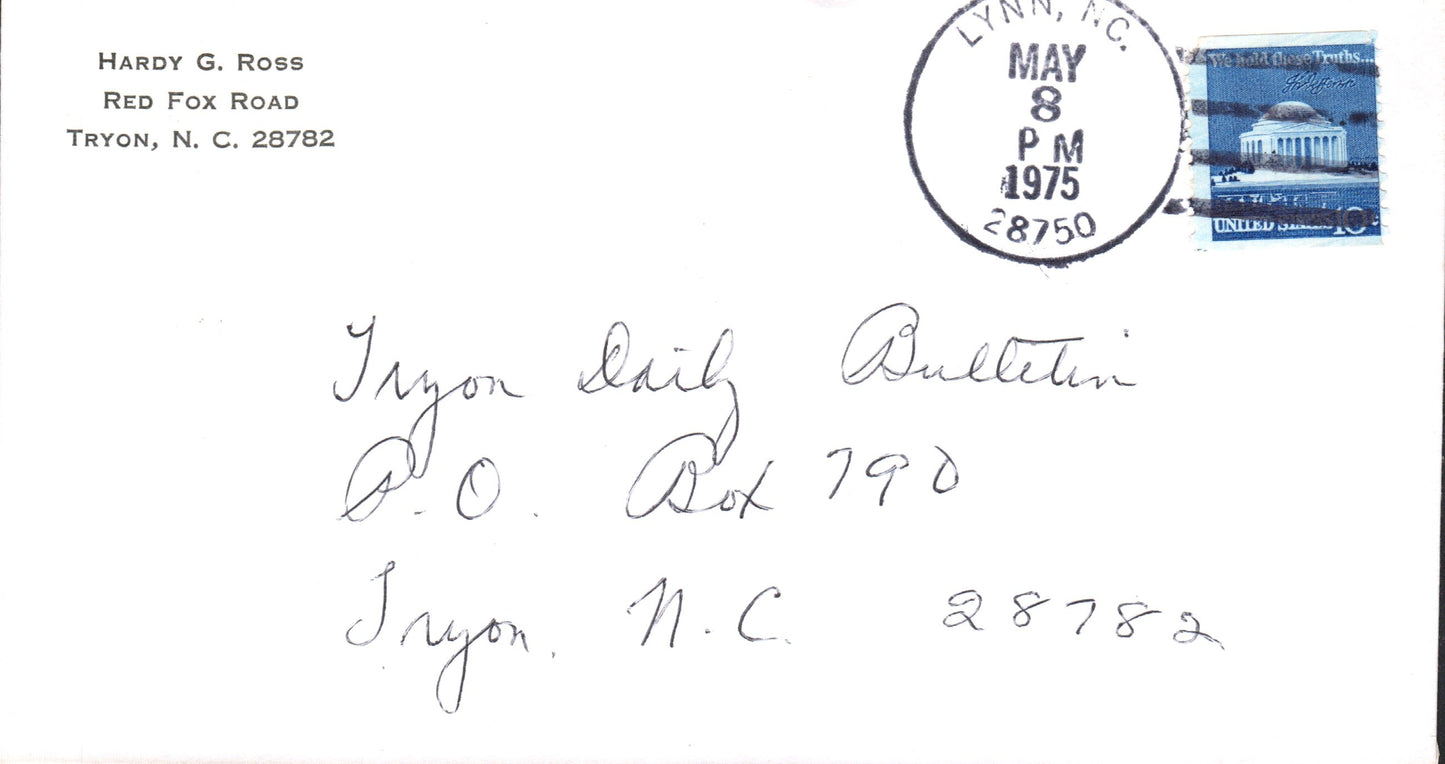 HARDY G. ROSS
RED FOX ROAD
TRYON, N. C. 28782
LYNN, NC.
MAY
8
PM
1975
28750
We hold these Truths...
Th Jefferson
UNITED STATES 10c
Tryon Daily Bulletin
P.O. Box 790
Tryon, N.C. 28782